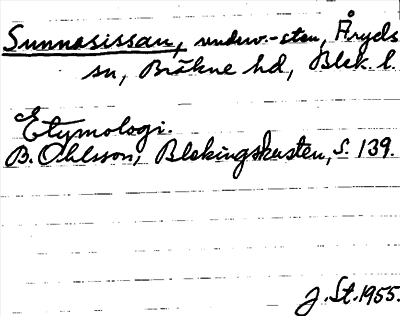 Sunnasissan, underv.-sten, Åryds
sn, Bräkne hd, Blek. l.
Etymologi.
B. Ohlsson, Blekingskusten, s. 139.
J. St. 1955.